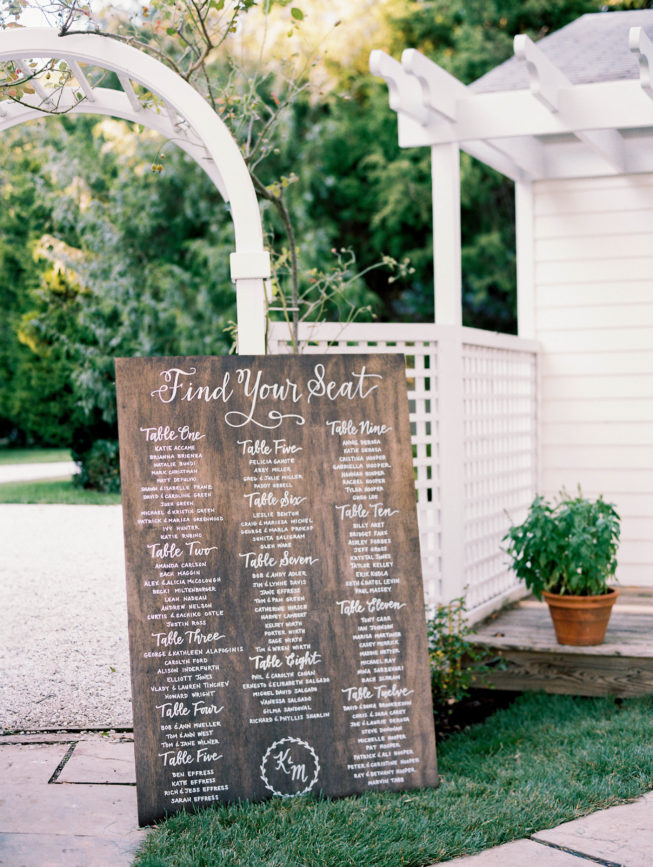 Find Your Seat
Table One
KATIE ACCAME
BRIANNA BRIENZA
NATALIE BUNDI
MARK CHRISTMAN
MATT DEFALIO
SHAWN & ISABELLE FORD
DAVID & CAROLINE GREEN
JOSH GREEN
MICHAEL & KRISTIN GREEN
PATRICK & MARISA GREENWOOD
IVY HUNTER
KATIE RUBINO
Table Two
AMANDA CARLSON
ZACK MAGGIN
ALEX & ALICIA MCCOLOUGH
BECKI MILTENBARGER
LEAH NADEAU
ANDREW NELSON
CURTIS & SACHIKO OTTE
JUSTIN ROSS
Table Three
GEORGE & KATHLEEN ALAFOGINIS
CAROLYN FORD
ALISON INDERFURTH
ELLIOTT JONAS
VLADY & LAUREN TINCHEV
HOWARD WRIGHT
Table Four
BOB & ANN MUELLER
TOM & ANN WEST
TOM & JANE WILNER
Table Five
BEN EFFRESS
KATIE EFFRESS
RICH & JESS EFFRESS
SARAH EFFRESS
Table Five
FELICIA GAHOTE
ABBY MILLER
GREG & JULIE MILLER
PADDY NEWELL
Table Six
LESLIE DENTON
CRAIG & MARISSA MICHEL
GEORGE & MARLA PROKOP
SENITA SALIGRAM
GLEN WARE
Table Seven
BOB & ANDY ADLER
JIM & LYNNE DAVIS
JANE EFFRESS
TOM & PAM GREEN
CATHERINE HIRSCH
HARPER LAMBERT
KELSEY WIRTH
PORTER WIRTH
SAGE WIRTH
TIM & WREN WIRTH
Table Eight
PHIL & CAROLYN COHAN
ERNESTO & ELISABETH SALGADO
MICHEL DAVID SALGADO
VANESSA SALGADO
GILMA SANDOVAL
RICHARD & PHYLLIS SHARLIN
K & M
Table Nine
CRISTINA HOOPER
GABRIELLA HOOPER
HANNAH HOOPER
RACHEL HOOPER
TYLER HOOPER
GREG LOR
Table Ten
BILLY ABET
BRIDGET FAHE
ASHLEY FORBES
JEFF GROSS
KRYSTAL JONES
TAYLOR KELLEY
ERIK KUSLA
SETH & DAFEL LEVIN
PAUL MASSEY
Table Eleven
TONY CARR
IAN JOHNSON
MARISA MARTINER
CASEY MERRICK
MADDIE METTER
MICHAEL RAY
Table Twelve
CHRIS & DANA CAREY
JOE & LAURIE DEROSA
STEVE DUNIGAN
MICHELLE HOOPER
PAT HOOPER
PATRICK & ALI HOOPER
PETER & CHRISTINE HOOPER
RAY & BETHANY HOOPER
MARVIN TABB